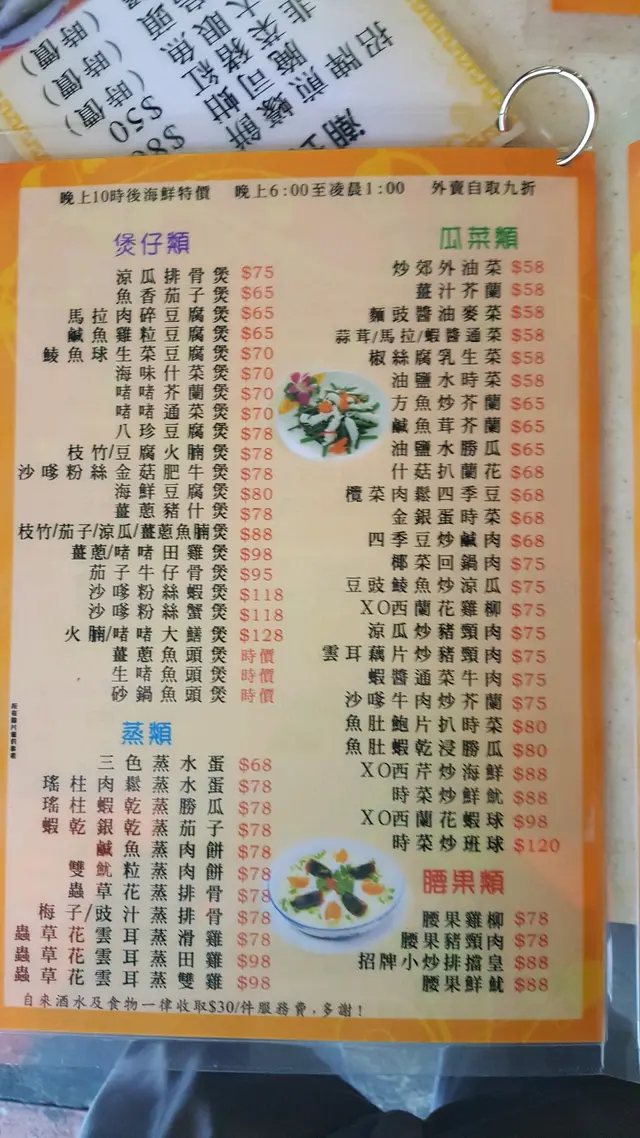 招牌煎蠔餅
$50
(時價)
(時價)
(時價)
晚上10時後海鮮特價 晚上6:00至凌晨1:00 外賣自取九折
煲仔類
涼瓜排骨煲 $75
魚香茄子煲 $65
馬拉肉碎豆腐煲 $65
鹹魚雞粒豆腐煲 $65
鯪魚球生菜豆腐煲 $70
海味什菜煲 $70
啫啫芥蘭煲 $70
啫啫通菜煲 $70
八珍豆腐煲 $78
枝竹/豆腐火腩煲 $78
沙嗲粉絲金菇肥牛煲 $78
海鮮豆腐煲 $80
薑蔥豬什煲 $78
枝竹/茄子/涼瓜/薑蔥魚腩煲 $88
薑蔥/啫啫田雞煲 $98
茄子牛仔骨煲 $95
沙嗲粉絲蝦煲 $118
沙嗲粉絲蟹煲 $118
火腩/啫啫大鱔煲 $128
薑蔥魚頭煲 時價
生啫魚頭煲 時價
砂鍋魚頭煲 時價
蒸類
三色蒸水蛋 $68
瑤柱肉鬆蒸水蛋 $78
瑤柱蝦乾蒸勝瓜 $78
蝦乾銀乾蒸茄子 $78
鹹魚蒸肉餅 $78
雙魷粒蒸肉餅 $78
蟲草花蒸排骨 $78
梅子/豉汁蒸排骨 $78
蟲草花雲耳蒸滑雞 $78
蟲草花雲耳蒸田雞 $98
蟲草花雲耳蒸雙雞 $98
瓜菜類
炒郊外油菜 $58
薑汁芥蘭 $58
麵豉醬油麥菜 $58
蒜茸/馬拉/蝦醬通菜 $58
椒絲腐乳生菜 $58
油鹽水時菜 $58
方魚炒芥蘭 $65
鹹魚茸芥蘭 $65
油鹽水勝瓜 $65
什菇扒蘭花 $68
欖菜肉鬆四季豆 $68
金銀蛋時菜 $68
四季豆炒鹹肉 $68
椰菜回鍋肉 $75
豆豉鯪魚炒涼瓜 $75
XO西蘭花雞柳 $75
涼瓜炒豬頸肉 $75
雲耳藕片炒豬頸肉 $75
蝦醬通菜牛肉 $75
沙嗲牛肉炒芥蘭 $75
魚肚鮑片扒時菜 $80
魚肚蝦乾浸勝瓜 $80
XO西芹炒海鮮 $88
時菜炒鮮魷 $88
XO西蘭花蝦球 $98
時菜炒班球 $120
腰果類
腰果雞柳 $78
腰果豬頸肉 $78
招牌小炒排擋皇 $88
腰果鮮魷 $88
自來酒水及食物一律收取$30/件服務費,多謝!